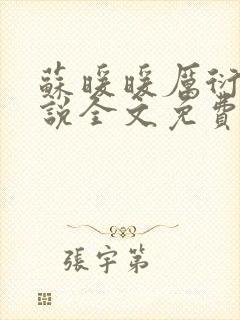 蘇暖暖厲衍
說全文免費
張宇第